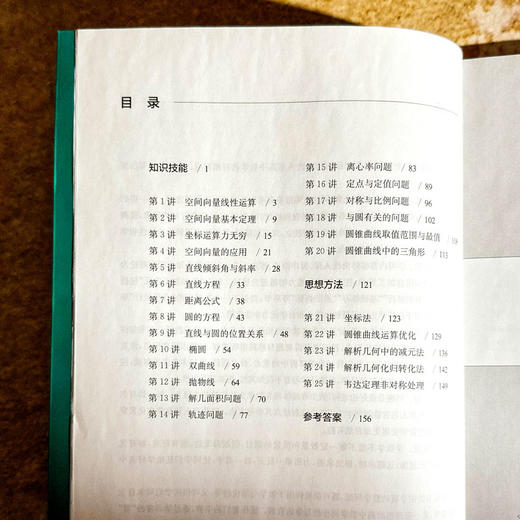 目 录
知识技能 / 1
第 1 讲 空间向量线性运算 / 3
第 2 讲 空间向量基本定理 / 9
第 3 讲 坐标运算力无穷 / 15
第 4 讲 空间向量的应用 / 21
第 5 讲 直线倾斜角与斜率 / 28
第 6 讲 直线方程 / 33
第 7 讲 距离公式 / 38
第 8 讲 圆的方程 / 43
第 9 讲 直线与圆的位置关系 / 48
第 10 讲 椭圆 / 54
第 11 讲 双曲线 / 59
第 12 讲 抛物线 / 64
第 13 讲 解几面积问题 / 70
第 14 讲 轨迹问题 / 77
第 15 讲 离心率问题 / 83
第 16 讲 定点与定值问题 / 89
第 17 讲 对称与比例问题 / 96
第 18 讲 与圆有关的问题 / 102
第 19 讲 圆锥曲线取值范围与最值 / 108
第 20 讲 圆锥曲线中的三角形 / 113
思想方法 / 121
第 21 讲 坐标法 / 123
第 22 讲 圆锥曲线运算优化 / 129
第 23 讲 解析几何中的减元法 / 136
第 24 讲 解析几何化归转化法 / 142
第 25 讲 韦达定理非对称处理 / 149
参考答案 / 156